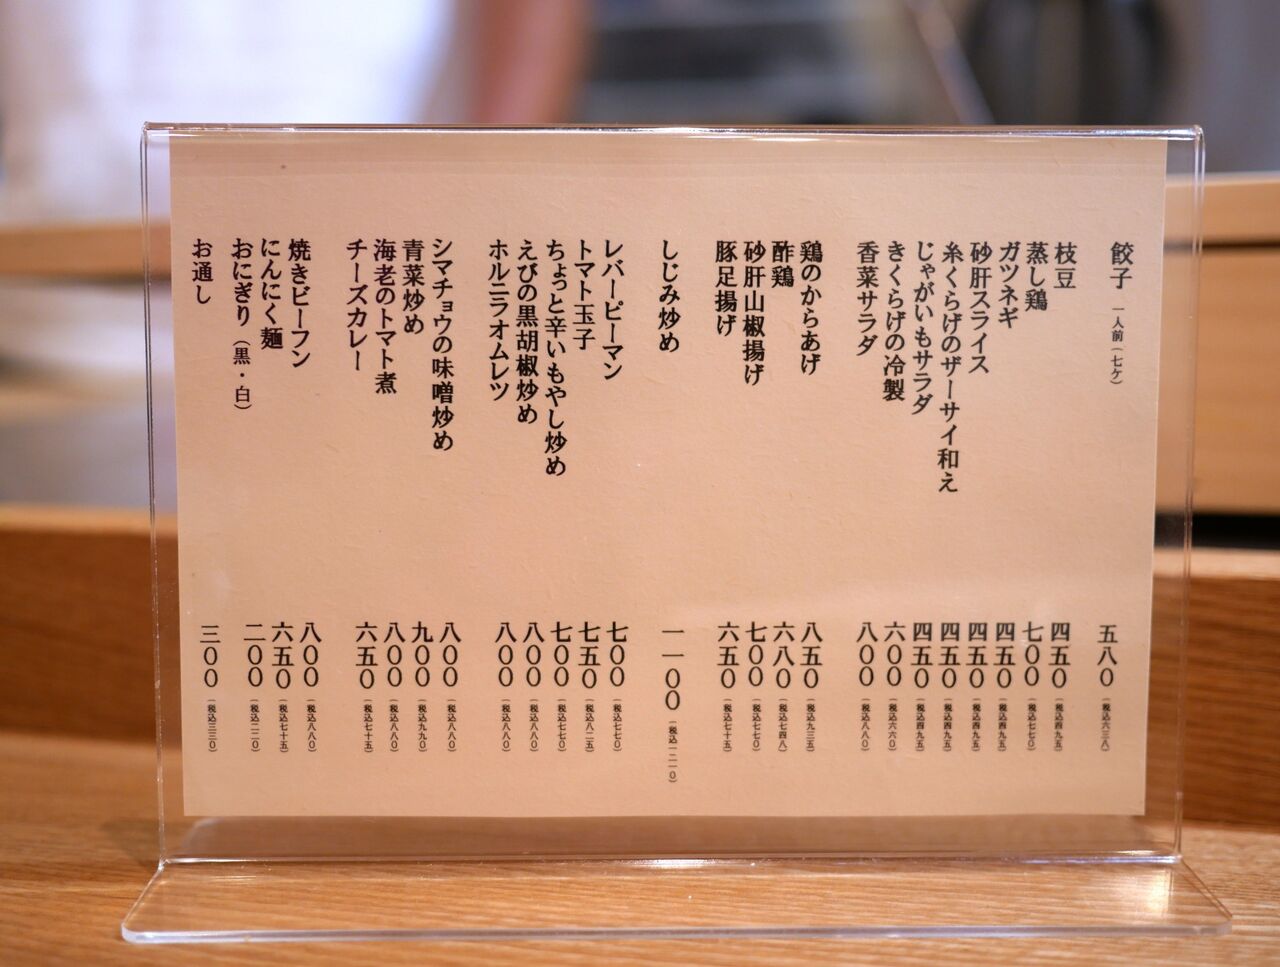 餃子 一人前(七ケ) 五八〇(税込六三八)
枝豆 四五〇(税込四九五)
蒸し鶏 七〇〇(税込七七〇)
ガツネギ 四五〇(税込四九五)
砂肝スライス 四五〇(税込四九五)
糸くらげのザーサイ和え 四五〇(税込四九五)
じゃがいもサラダ 四五〇(税込四九五)
きくらげの冷製 六〇〇(税込六六〇)
香菜サラダ 八〇〇(税込八八〇)
鶏のからあげ 八五〇(税込九三五)
酢鶏 六八〇(税込七四八)
砂肝山椒揚げ 七〇〇(税込七七〇)
豚足揚げ 六五〇(税込七十五)
しじみ炒め 一一〇〇(税込一二一〇)
レバーピーマン 七〇〇(税込七七〇)
トマト玉子 七五〇(税込八二五)
ちょっと辛いもやし炒め 七〇〇(税込七七〇)
えびの黒胡椒炒め 八〇〇(税込八八〇)
ホルニラオムレツ 八〇〇(税込八八〇)
シマチョウの味噌炒め 八〇〇(税込八八〇)
青菜炒め 九〇〇(税込九九〇)
海老のトマト煮 八〇〇(税込八八〇)
チーズカレー 六五〇(税込七十五)
焼きビーフン 八〇〇(税込八八〇)
にんにく麺 六五〇(税込七十五)
おにぎり(黒・白) 二〇〇(税込二二〇)
お通し 三〇〇(税込三三〇)